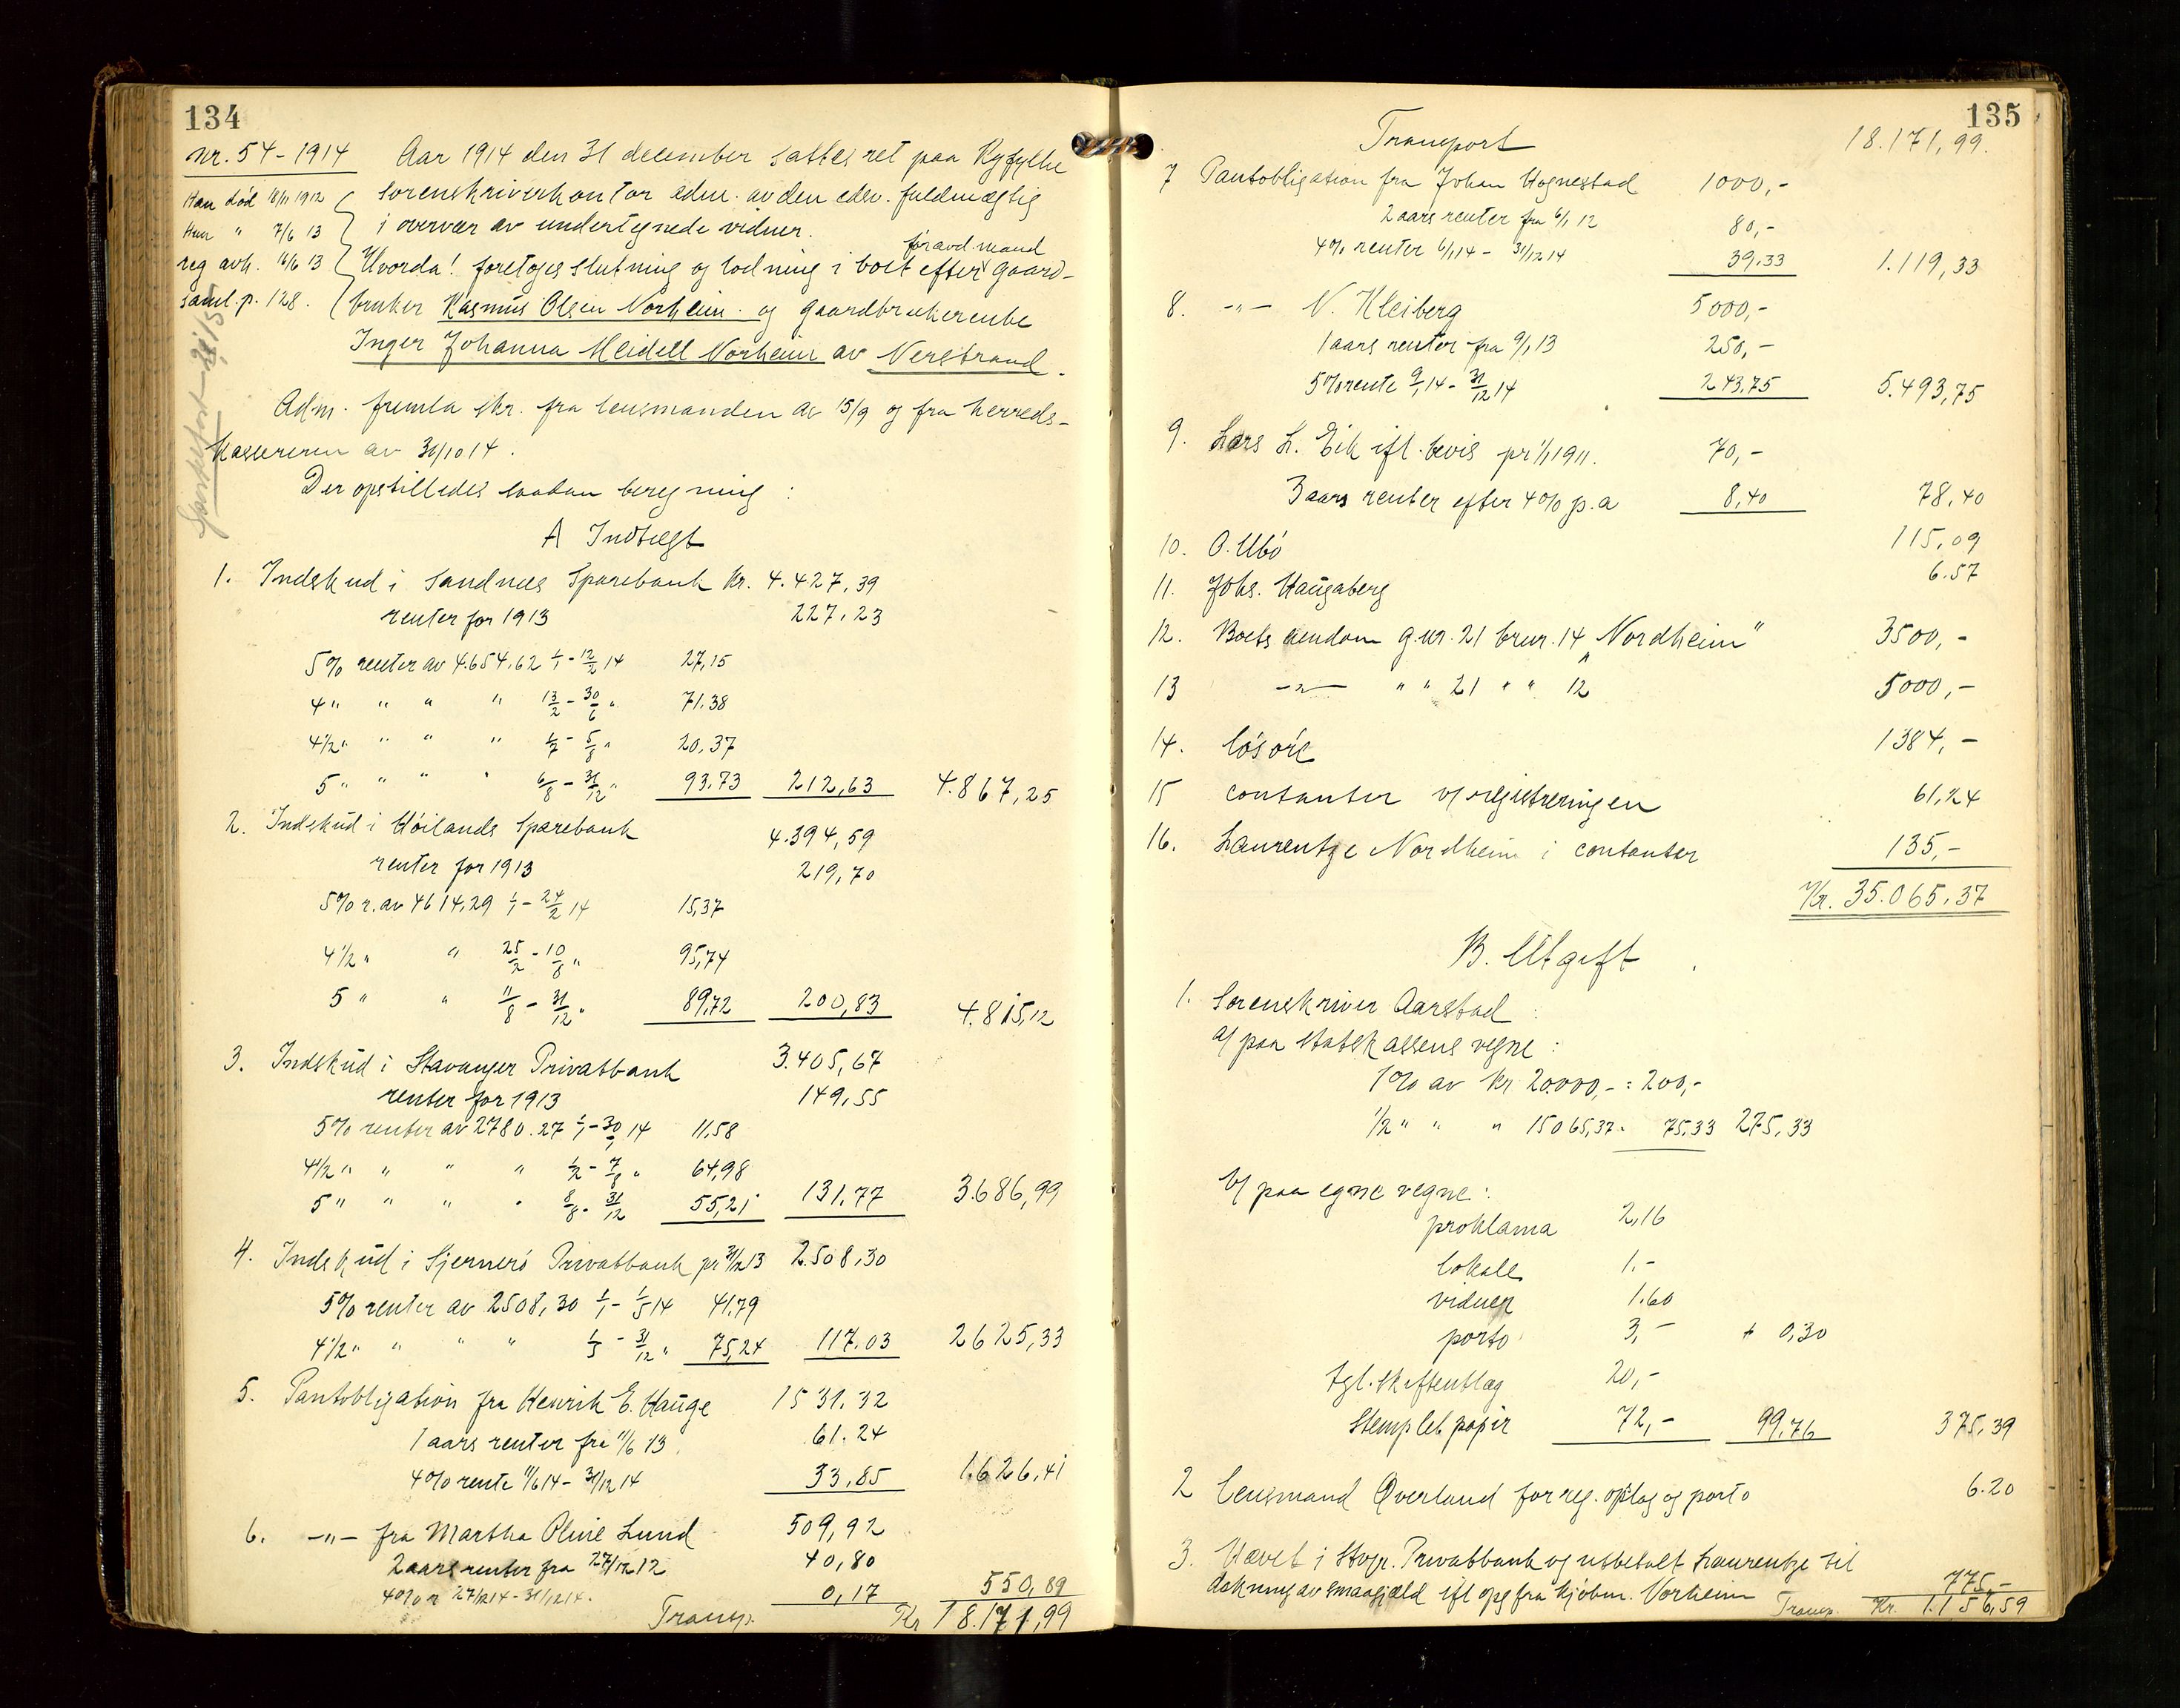 134
nr. 54 - 1914 Aar 1914 den 31 december sattes ret paa Ryfylke
Han död 18/11 1912 sorenskriverkontor adm. av den edsv. fuldmægtig
Hun " 7/6 13 i overvær av undertegnede vidner.
foravd. mand
reg avh. 16/6 13 Hvorda! foretoges slutning og lodning i boet efter gaard-
saml. p. 128. bruker Rasmus Olsen Norheim og gaardbrukerenke
Inger Johanna Meidell Norheim av Nerstrand.
Adm. fremla skr. fra lensmanden av 15/9 og fra herreds-
kassereren av 31/10 14.
Der opstilledes saadan beregning:
A Indtægt
1. Indskud i Sandnes Sparebank Kr. 4.427,39
renter for 1913 227,23
5% renter av 4.654,62 1/1 - 12/2 14 27,15
4 " " " " 13/2 - 30/6 " 71,38
4 1/2 " " " " 1/7 - 5/8 " 20,37
5 " " " " 6/8 - 31/12 " 93,73 212,63 4.867,25
2. Indskud i Höilands Sparebank 4.394,59
renter for 1913 219,70
5% r. av 4614,29 1/1 - 24/2 14 15,37
4 1/2 " " 25/2 - 10/8 " 95,74
5 " " 11/8 - 31/12 " 89,72 200,83 4.815,12
3. Indskud i Stavanger Privatbank 3.405,67
renter for 1913 149,55
5% renter av 2780.27 1/1 - 30/1 14 11,58
4 1/2 " " " " 1/2 - 7/8 " 64,98
5 " " " " 8/8 - 31/12 55,21 131,77 3.686,99
4. Indskud i Sjernerö Privatbank pr 31/12 13 2.508,30
5% renter av 2508,30 1/1 - 1/5 14 41,79
4 1/2 " " " " 1/5 - 31/12 " 75,24 117.03 2625,33
5. Pantobligation fra Henrik E. Hauge 1531.32
1 aars renter fra 11/6 13. 61.24
4% rente 11/6 14 - 31/12 14 33,85 1.626,41
6. -"- fra Martha Oline Lund 509,92
2 aars renter fra 27/12 12 40,80
4% r 27/12 14 - 31/12 14. 0,17 550,89
Transp. Kr 18.171,99
135
Transport 18.171,99.
7 Pantobligation fra Johan Hognestad 1000,-
2 aars renter fra 6/1 12 80,-
4% renter 6/1 14 - 31/12 14 39.33 1.119,33
8. -"- N. Kleiberg 5000,-
1 aars renter fra 9/1 13 250,-
5% rente 9/1 14 - 31/12 14 243,75 5.493,75
9. Lars L. Eik ifl. bevis pr 1/1 1911. 70,-
3 aars renter efter 4% p.a 8,40 78,40
10. O. Ubö 115,09
11. Johs. Haugaberg 6.57
12. Boets eiendom g.nr. 21 brnr. 14 "Nordheim" 3500,-
13 -"- " " 21 " " 12 5000,-
14. lösöre 1384,-
15 contanter v/ registreringen 61,24
16. Laurentze Nordheim i contanter 135,-
Kr. 35.065,37
B. Utgift
1. Sorenskriver Aarstad:
a/ paa statskassens vegne:
1% av kr 20.000,- = 200,-
1/2 " " " 15065,37 = 75,33 275,33
b/ paa egne vegne:
proklama 2,16
lokale 1.-
vidner 1.60
porto 3,- + 0,30
tgl. skifteutlæg 20,-
Stemplet papir 72,- 99,76 375,39
2 Lensmand Øverland for reg. optag og porto 6.20
3. Hævet i Stvgr. Privatbank og utbetalt Laurentze til
dækning av smaagjæld ifl opg fra kjöbm. Norheim 775,-
Transp. Kr. 1.156,59